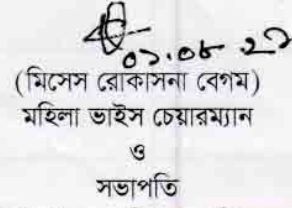 ০১.০৮.২১
(মিসেস রোকাসনা বেগম)
মহিলা ভাইস চেয়ারম্যান
ও
সভাপতি